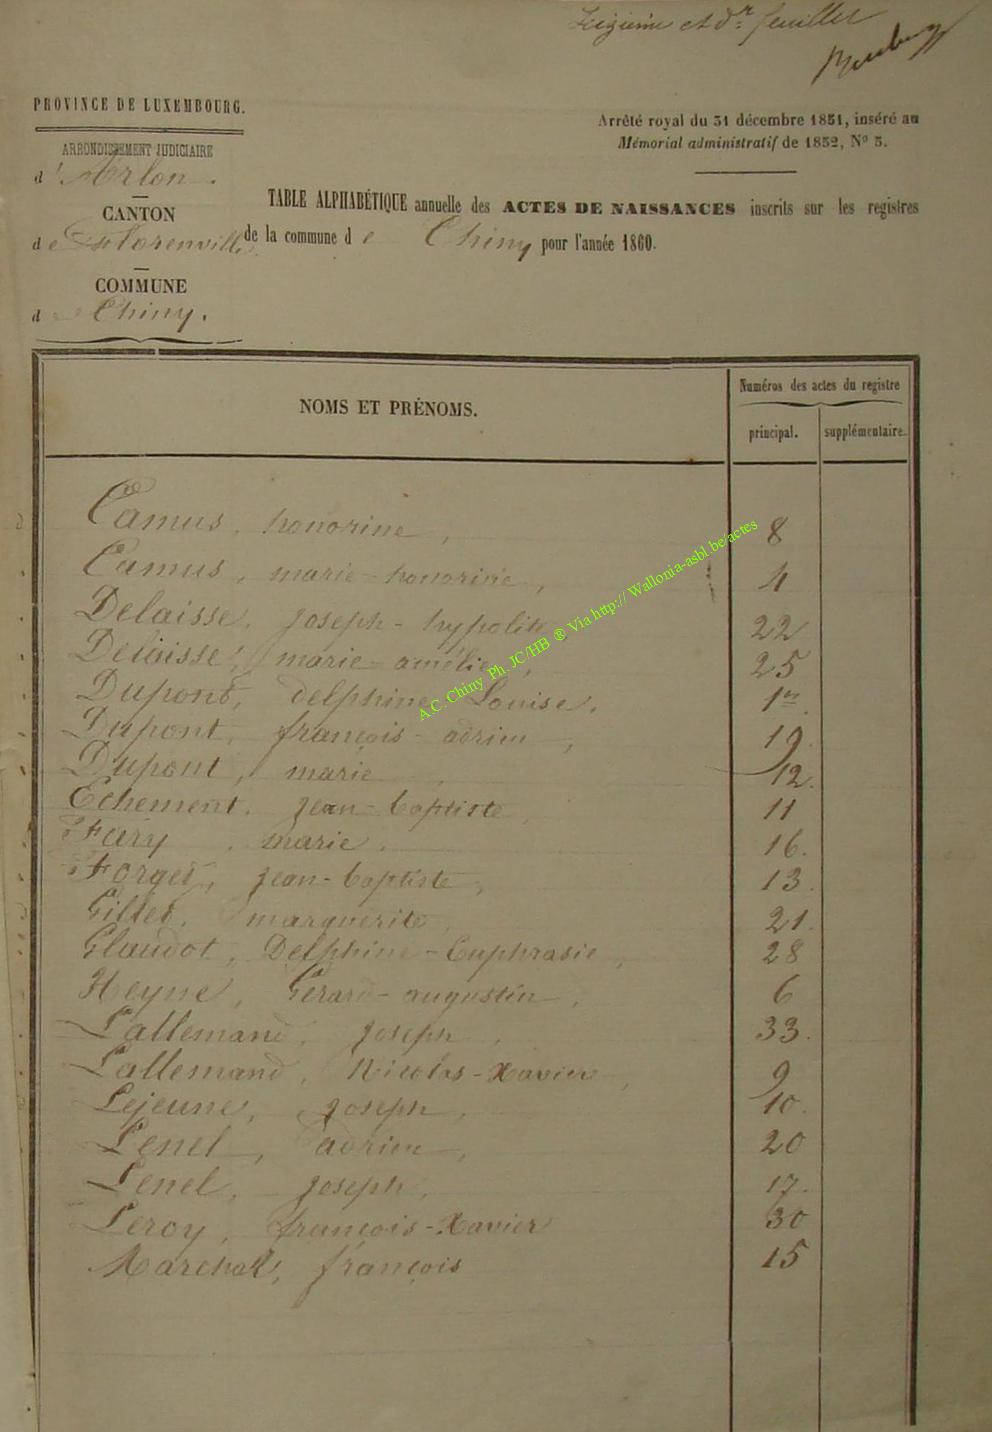 et dr feuillet
PROVINCE DE LUXEMBOURG.
ARRONDISSEMENT JUDICIAIRE
d'Arlon.
CANTON
de Florenville
COMMUNE
de Chiny.
Arrêté royal du 31 décembre 1851, inséré au
Mémorial administratif de 1852, No 5.
TABLE ALPHABÉTIQUE annuelle des ACTES DE NAISSANCES inscrits sur les registres
de la commune de Chiny pour l'année 1860.
NOMS ET PRÉNOMS.
Numéros des actes du registre
principal. supplémentaire.
Camus, honorine, 8
Camus, marie-honorine, 4
Delaisse, joseph-hypolite 22
Delaisse, marie-amélie, 25
Dupont, delphine Louise. 1er
Dupont, françois-adrien, 19
Dupont, marie, 12.
Echement, jean-baptiste, 11
Féry, marie. 16.
Forget, jean-baptiste, 13.
Gillet, marguerite, 21.
Glaudot, Delphine-Euphrasie, 28
Heyne, Gérard-augustin, 6
Lallemand, joseph, 33.
Lallemand, Nicolas-Xavier, 9
Lejeune, joseph, 10.
Lenel, adrien, 20
Lenel, joseph, 17.
Leroy, françois-Xavier 30
Marchal, françois 15
A.C. Chiny Ph. JC/HB ® Via http://Wallonia-asbl.be/actes